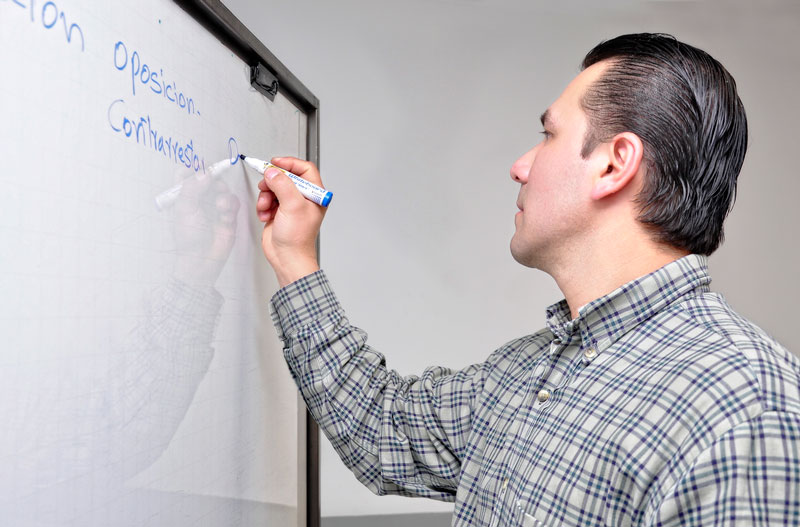 cion
Oposicion.
Contrarrestar D